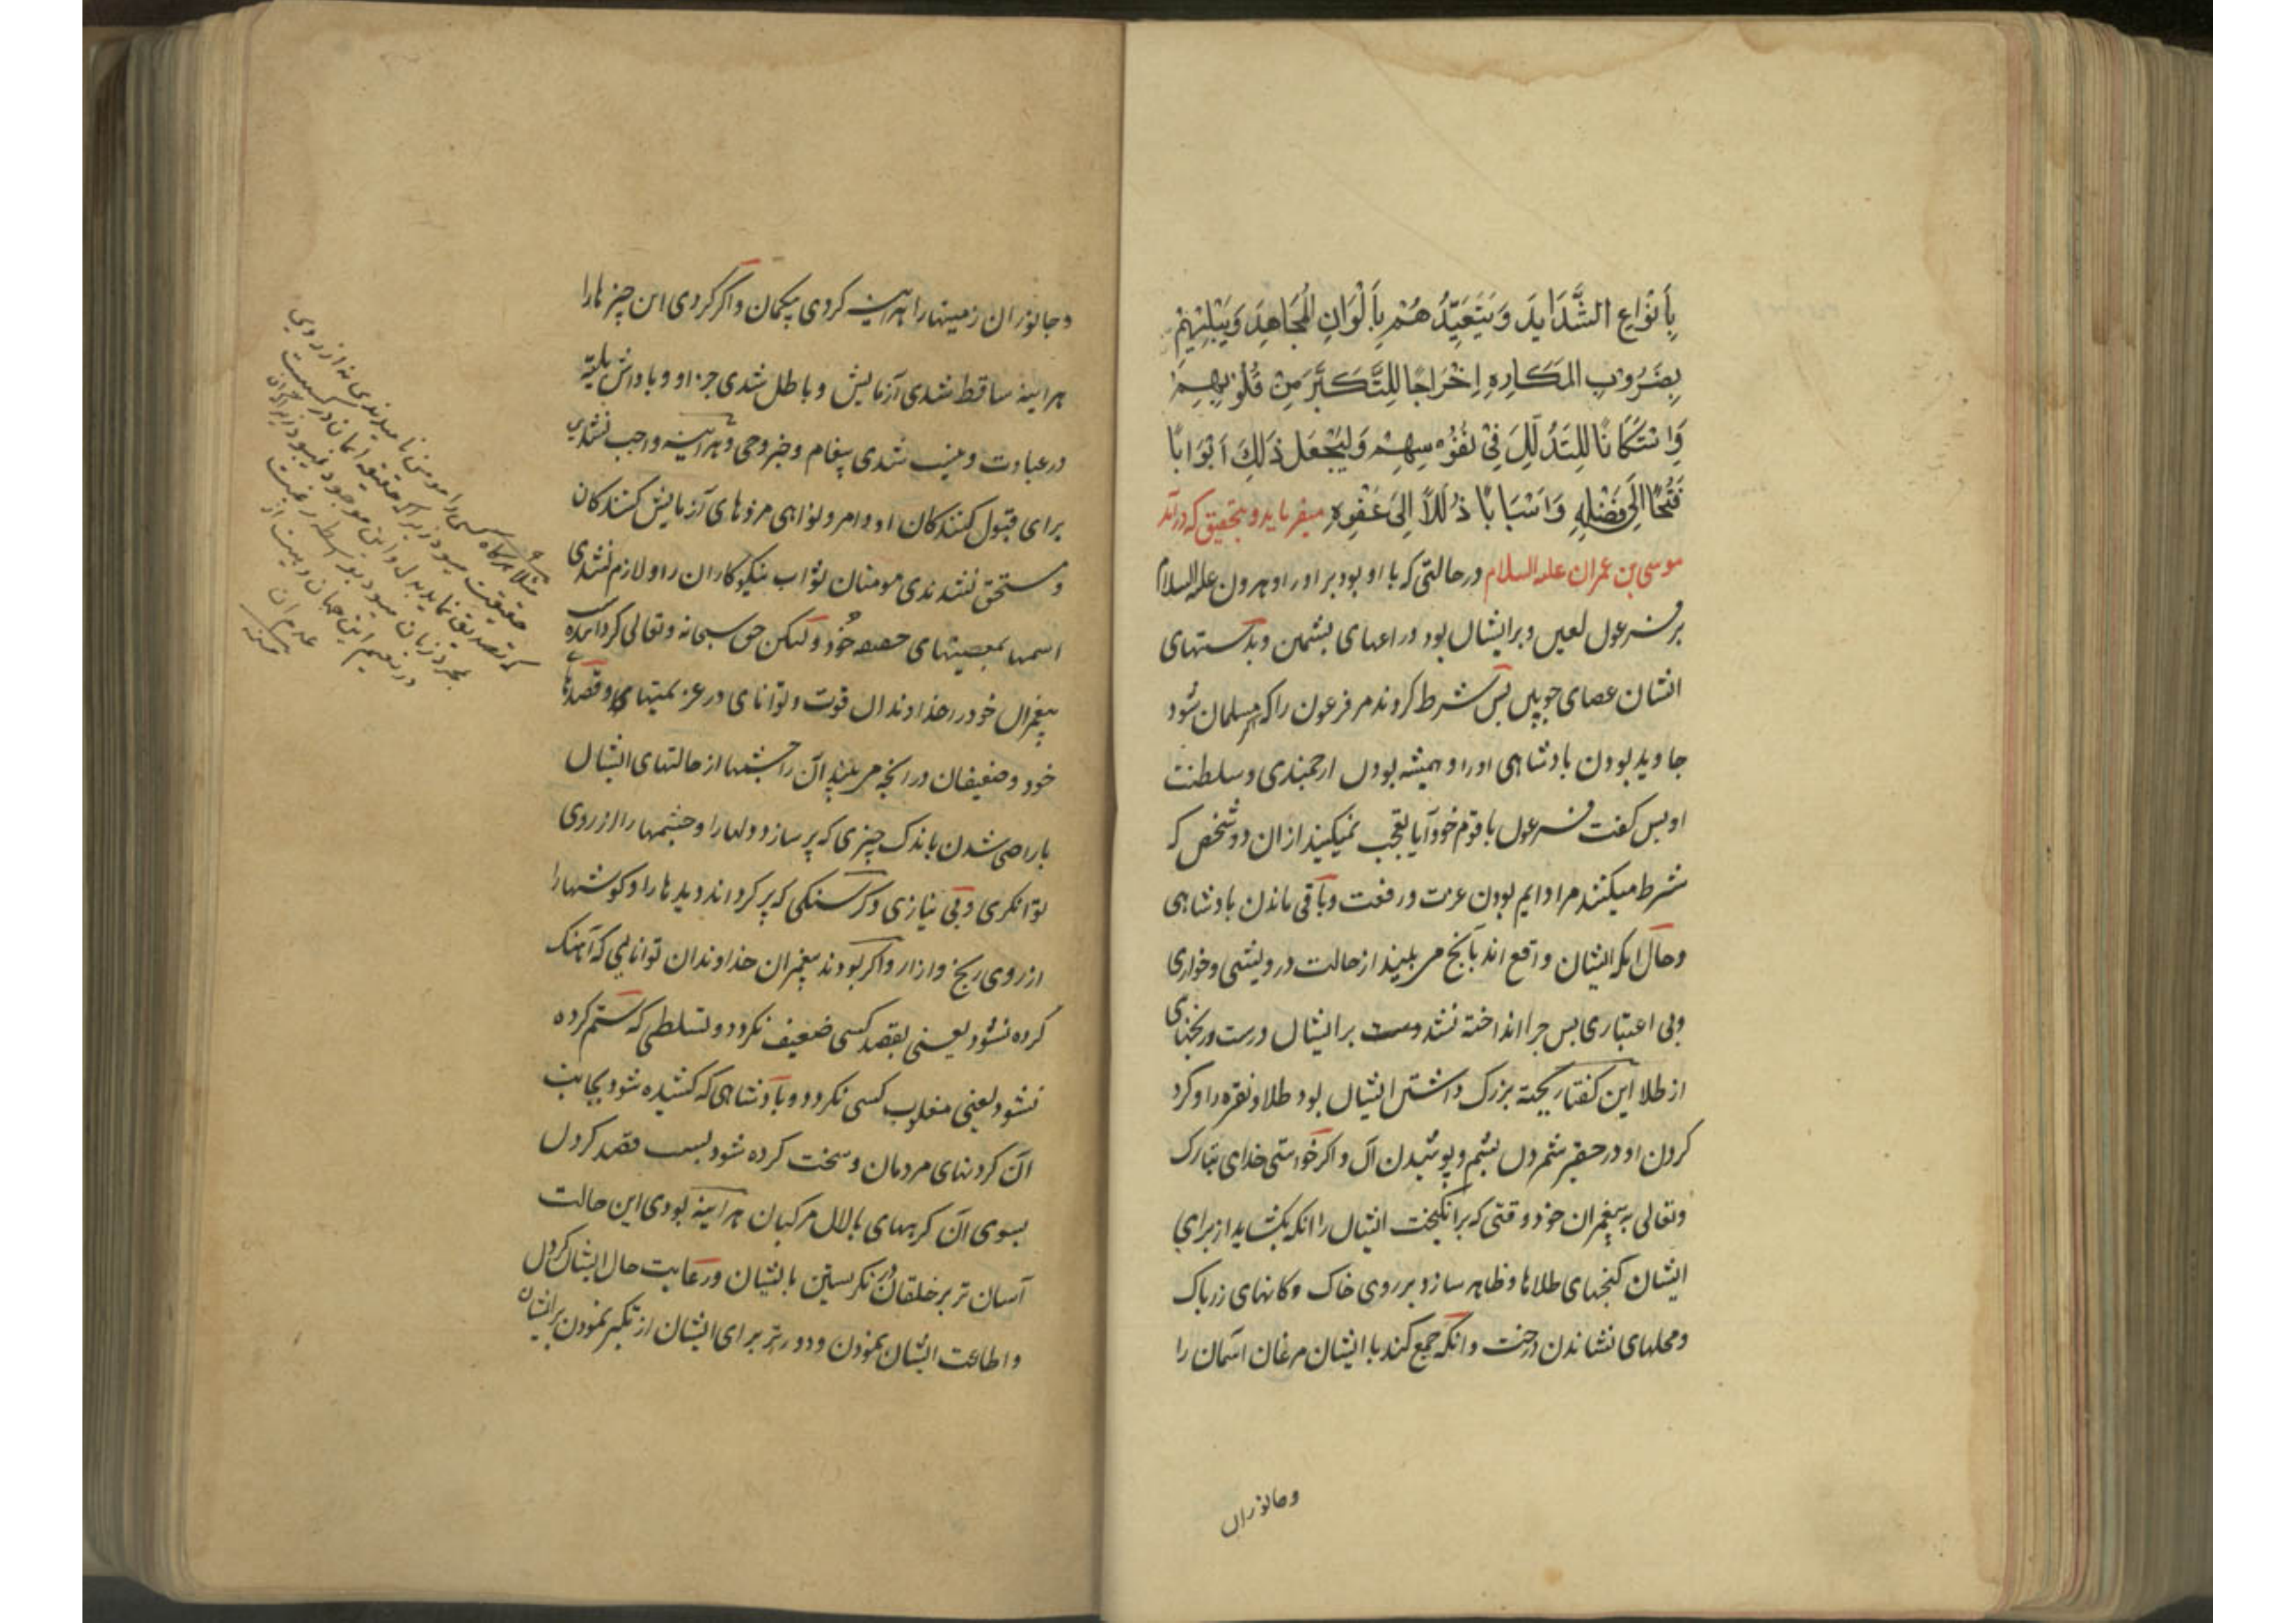 بِأَنْوَاعِ الشَّدَايِدِ وَيَتَعَبَّدُهُمْ بِأَلْوَانِ الْمَجَاهِدِ وَيَبْتَلِيهِمْ
بِضُرُوبِ الْمَكَارِهِ إِخْرَاجًا لِلتَّكَبُّرِ مِنْ قُلُوبِهِمْ
وَإِسْكَانًا لِلتَّذَلُّلِ فِي نُفُوسِهِمْ وَلِيَجْعَلَ ذَلِكَ أَبْوَابًا
فُتُحًا إِلَى فَضْلِهِ وَأَسْبَابًا ذُلُلًا إِلَى عَفْوِهِ میفرماید و بتحقیق که درآمد
موسی بن عمران علیه السلام در حالتی که با او بود برادر او هرون علیه السلام
بر فرعون لعین و بر ایشان بود دراعهای پشمین و بدستهای
ایشان عصای چوبین پس شرط کردند مر فرعون را که مسلمان شود
جاوید بودن پادشاهی او را و همیشه بودن ارجمندی و سلطنت
او پس کفت فرعون با قوم خود آیا تعجب نمیکنید از ان دو شخص که
شرط میکنند مرا دایم بودن عزت و رفعت و باقی ماندن پادشاهی
و حال انکه ایشان واقع اند بآنچه می بینید از حالت درویشی و خواری
و بی اعتباری پس چرا انداخته نشد بر ایشان دست ورنجنهای
از طلا این کفتار بجهة بزرک داشتن ایشان بود طلا و نقره را و کرد
کردن او و در حقیر شمردن پشم و پوشیدن آن و اکر خواستی خدای تبارک
و تعالی به پیغمبران خود وقتی که برانکیخت ایشان را انکه بکشاید از برای
ایشان کنجهای طلاها و ظاهر سازد بر روی خاک وکانهای زر پاک
و محلهای نشاندن درخت و انکه جمع کند با ایشان مرغان اسمان را
وجانوران
وجانوران زمینها را هراینه کردی بیکمان و اکر کردی این چیزها را
هراینه ساقط شدی آزمایش و باطل شدی جزا و پاداش
در عبادت و نیست شدی پیغام و خبر وحی و هراینه واجب نشدی
برای قبول کنندکان اوامر و نواهی مزدهای آزمایش کنندکان
و مستحق نشدندی مومنان ثواب نیکوکاران را و لازم نشدی
اسمها بمعنیهای خود و لیکن حق سبحانه و تعالی کردانیده
پیغمبران خود را خداوندان قوت و توانای در عزیمتهای و قصدها
خود و ضعیفان در انچه می بیند آن را چشمها از حالتهای ایشان
با راضی شدن باندک چیزی که پر سازد دلها را و چشمها را از روی
توانکری و بی نیازی و کرسنکی که پر کرداند دیدها را و کوشها را
از روی رنج و ازار و اکر بودند پیغمبران خداوندان توانایی که آهنک
کرده نشود یعنی بقصد کسی ضعیف نکردد و تسلطی که ستم کرده
نشود یعنی مغلوب کسی نکردد و پادشاهی که کشیده شود بجانب
آن کردنهای مردمان و سخت کرده شود بسبب قصد کردن
بسوی آن کرههای پالان مرکبان هراینه بودی این حالت
آسان تر بر خلقان در نکریستن بایشان و رعایت حال ایشان کردن
و اطاعت ایشان نمودن و دورتر برای ایشان از تکبر نمودن بر ایشان
مثلا هرکاه کسی را مومن نامیدندی نه از روی
حقیقت میبود زیرا که حقیقه ایمان
که تصدیق نماید بدل و این موجود نمیبود
بمجرد زبان میبود بواسطه رغبت
در نعیم این جهان